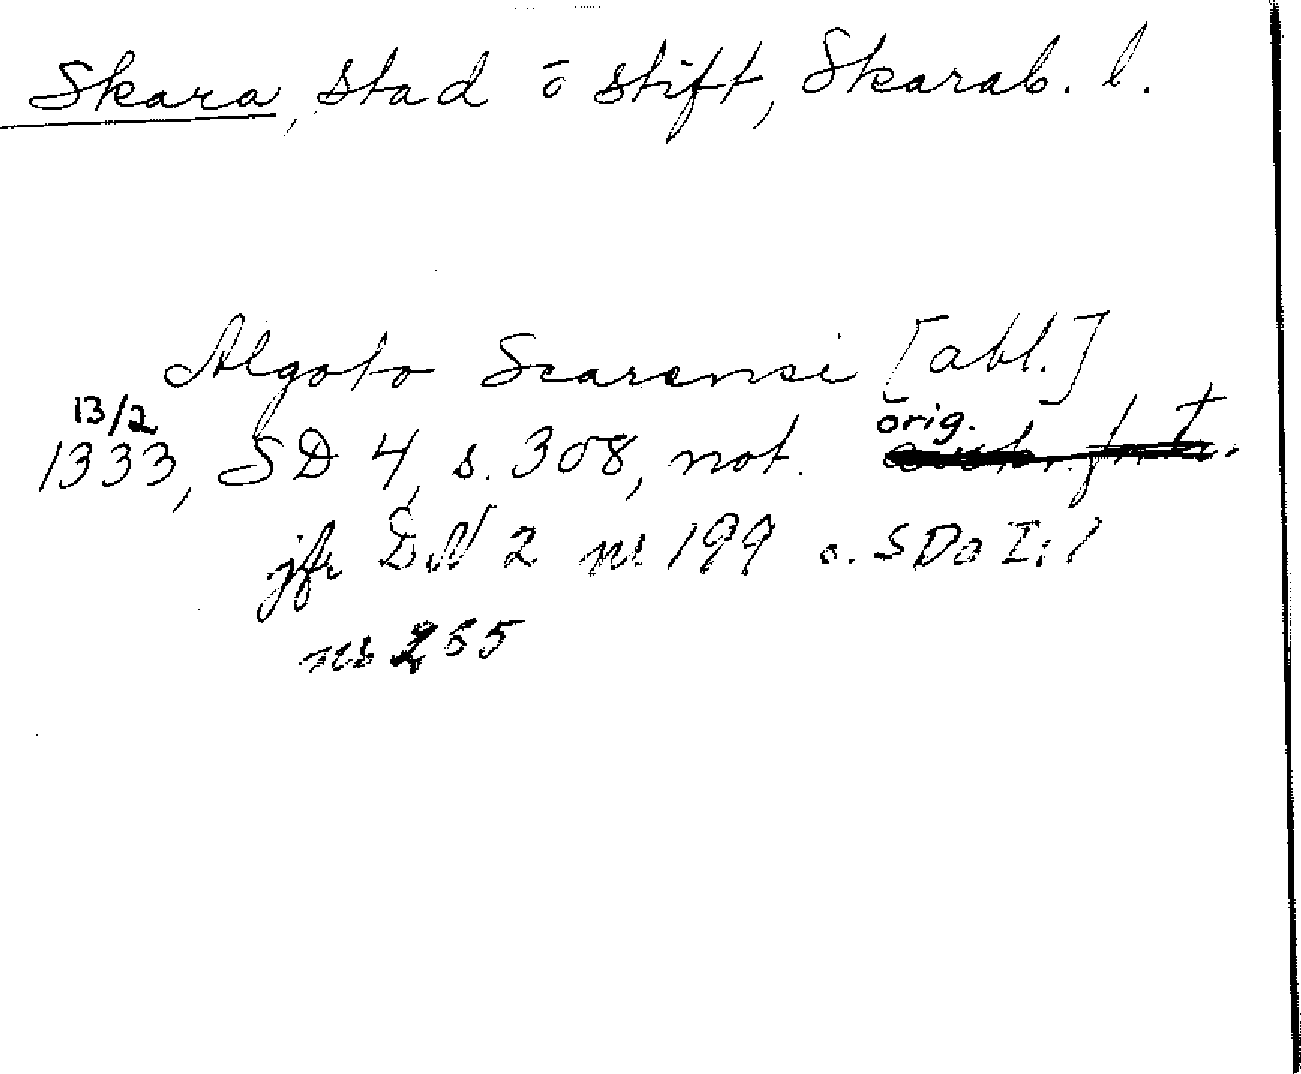 Skara, stad o stift, Skarab. l.
Algoto Scarensi [abl.]
13/2 orig.
1333, SD 4, s. 308, not.
jfr DN 2 nr 199 o. SDa I:1
nr 255